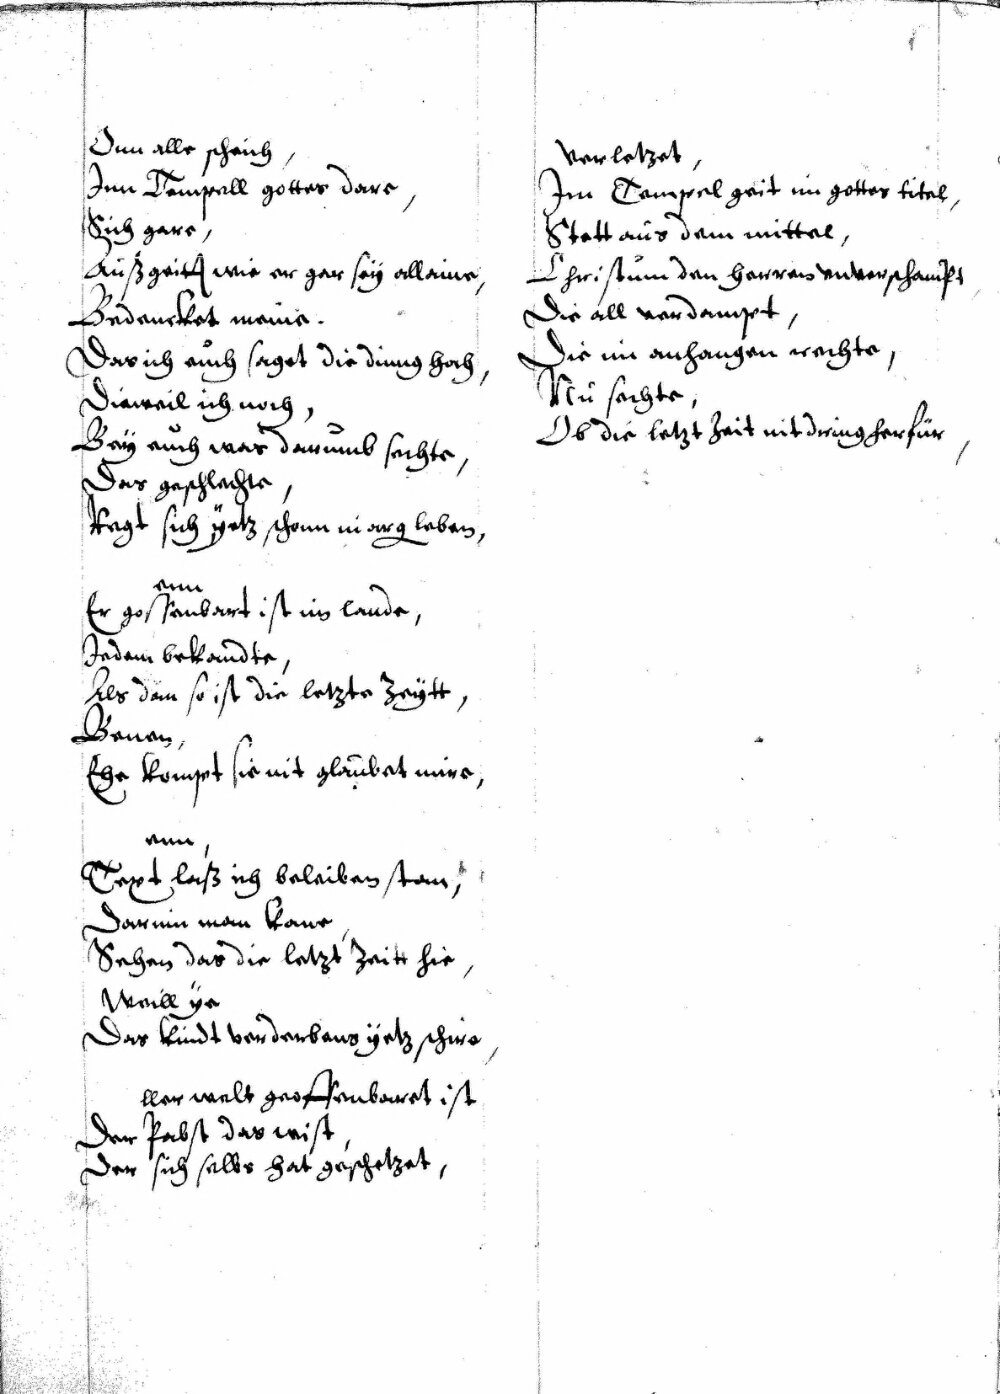 Onn alle scheich,
Inn Tempell gottes dare,
Sich gare,
Außgeitt wie er gar sey allaine,
Bedencket meine.
Das ich euch saget die dinng hoch,
Dieweil ich noch,
Bey euch was darumb sechte,
Das geschlechte,
Regt sich yetz schonn in arg leben,
enn
Er goffenbart ist im lande,
Jedem bekandte,
Als dan so ist die letzte Zeytt,
Benen,
Ehe kompt sie nit glaubet mire,
enn,
Text laß ich beleiben stan,
Darinn man kane
Sehen das die letzt Zeitt hie,
Weill ye
Das kindt verderbens yetz schire,
ller welt geoffenbaret ist
Der Pabst das wist,
Der sich selbs hat geschetzet,
verletzet,
Im Tempel geit im gottes titel,
Stett aus dem mittel,
Christum den herren unverschampt,
Die all verdampt,
Die im anhangen rechte,
Nu sechte,
Ob die letzt Zeit nit dring herfür,